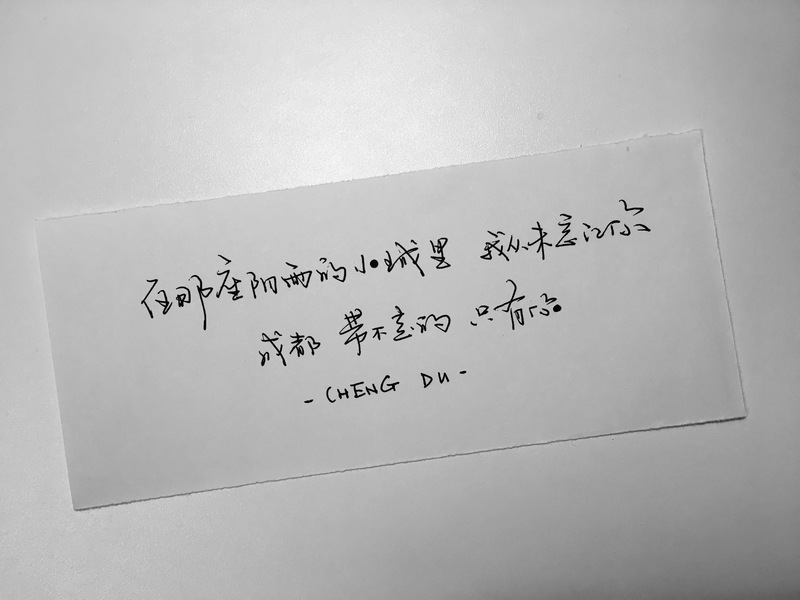 在那座阴雨的小城里 我从未忘记你
成都 带不走的 只有你
- CHENG DU -